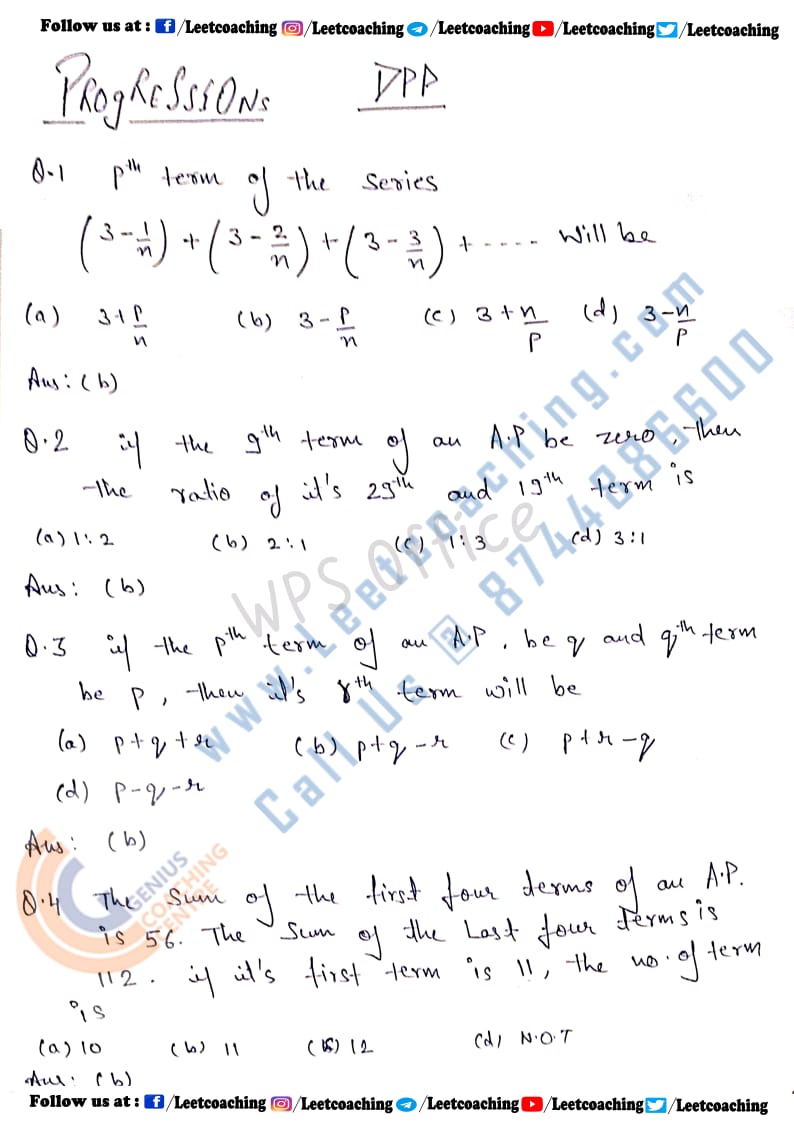 Follow us at : /Leetcoaching /Leetcoaching /Leetcoaching /Leetcoaching /Leetcoaching
PROgRESSIONs DPP
Q.1 pth term of the series
(3 - 1/n) + (3 - 2/n) + (3 - 3/n) + ----- will be
(a) 3+p/n (b) 3 - p/n (c) 3 + n/p (d) 3 - n/p
Ans: (b)
Q.2 if the 9th term of an A.P be zero, then
the ratio of it's 29th and 19th term is
(a) 1:2 (b) 2:1 (c) 1:3 (d) 3:1
Ans: (b)
Q.3 if the pth term of an A.P. be q and qth term
be p, then it's rth term will be
(a) p+q+r (b) p+q-r (c) p+r-q
(d) p-q-r
Ans: (b)
Q.4 The sum of the first four terms of an A.P.
is 56. The sum of the Last four terms is
112. if it's first term is 11, the no. of term
is
(a) 10 (b) 11 (c) 12 (d) N.O.T
Ans: (b)
www.Leetcoaching.com
Call Us @ 8744886600
WPS Office
GENIUS
COACHING
CENTRE
Follow us at : /Leetcoaching /Leetcoaching /Leetcoaching /Leetcoaching /Leetcoaching